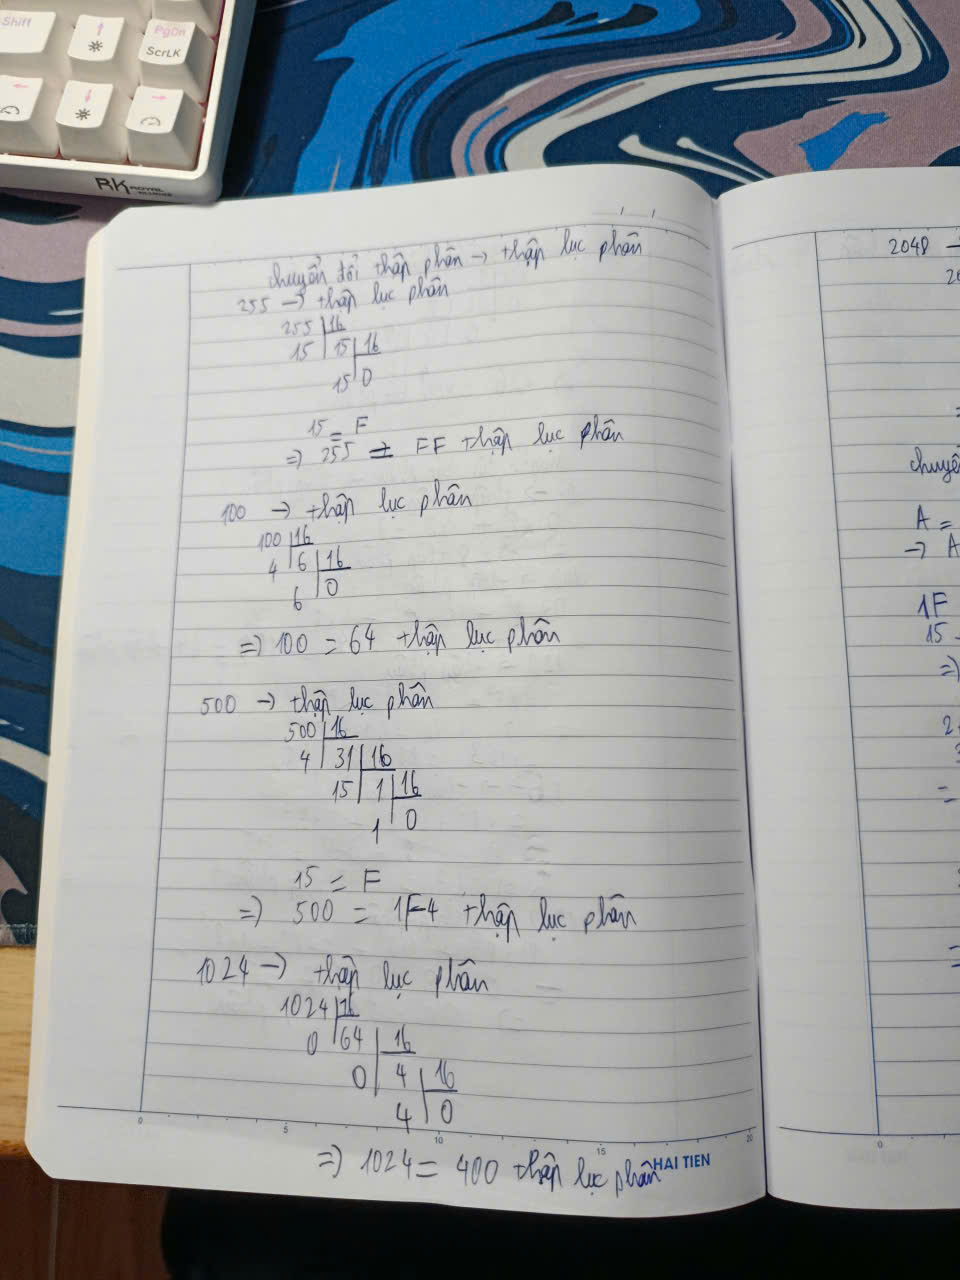 Shift
PgDn
ScrLK
RK ROYAL KLUDGE
chuyển đổi thập phân → thập lục phân
255 → thập lục phân
255 16
15 15 16
15 0
15 = F
=> 255 = FF thập lục phân
100 → thập lục phân
100 16
4 6 16
6 0
=> 100 = 64 thập lục phân
500 → thập lục phân
500 16
4 31 16
15 1 16
1 0
15 = F
=> 500 = 1F4 thập lục phân
1024 → thập lục phân
1024 16
0 64 16
0 4 16
4 0
0 5 10 15 20
HAI TIEN
=> 1024 = 400 thập lục phân
2048 →
20
=
chuyể
A =
→ A
1F
15
=>
2
3
=
0